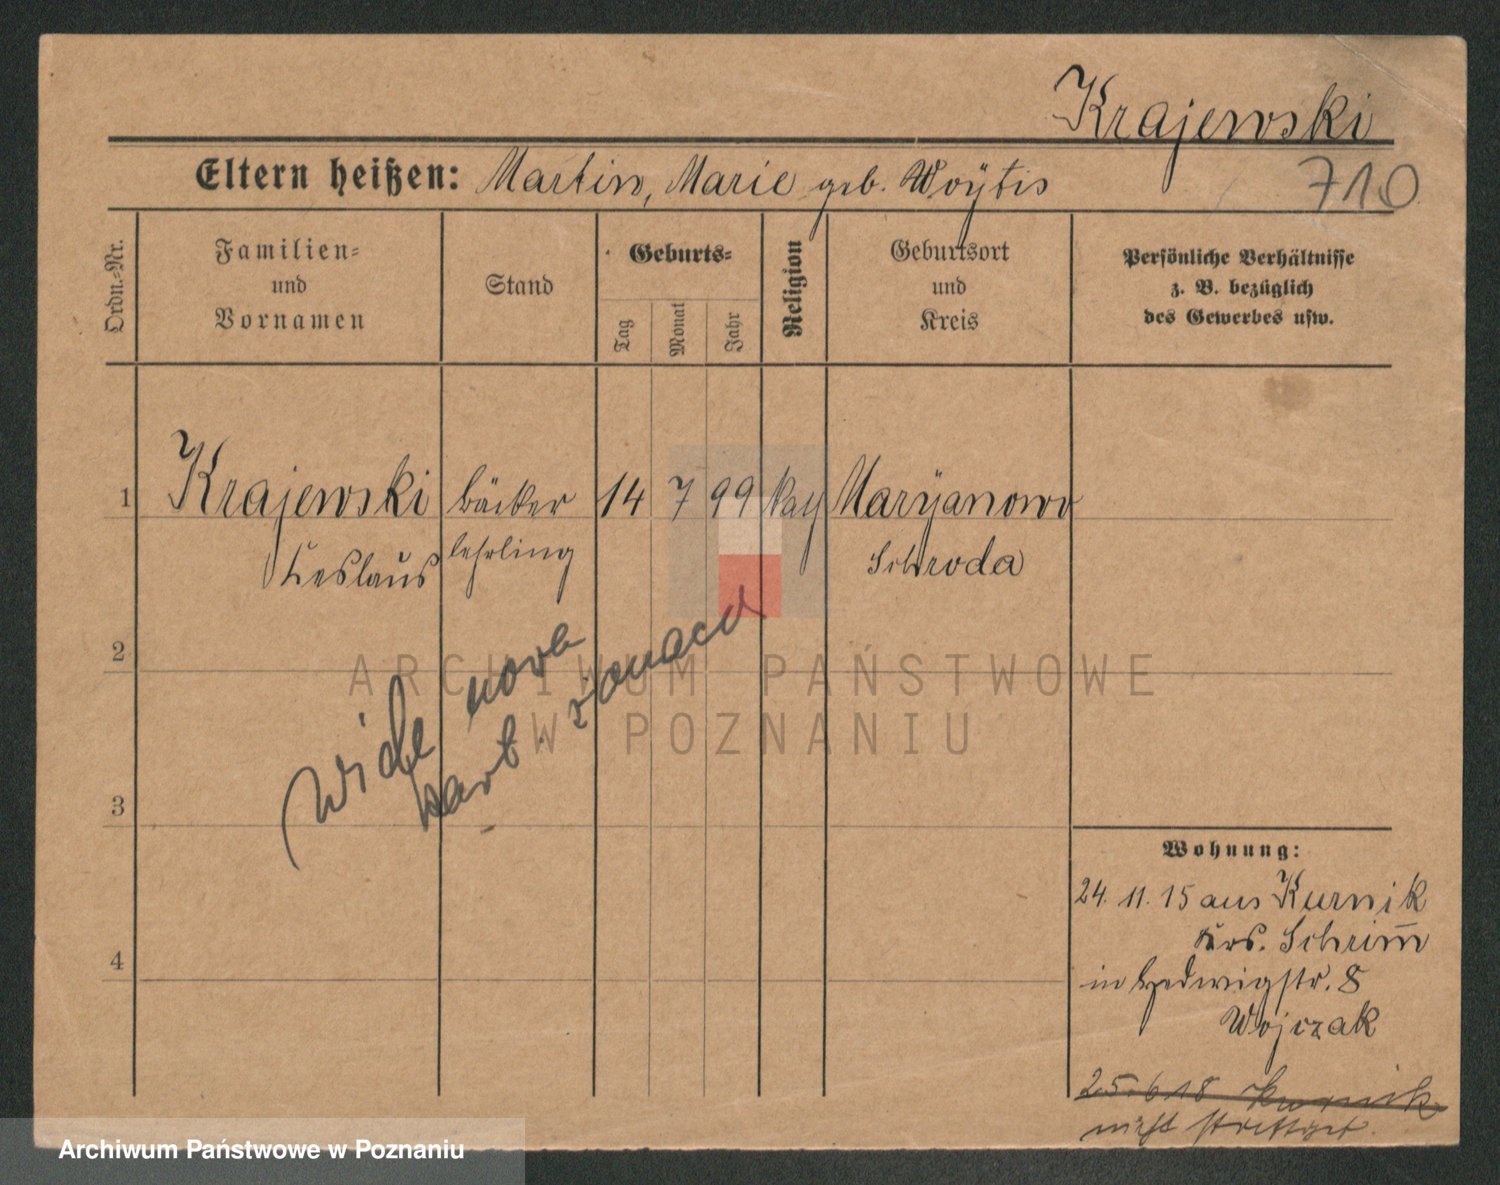 Krajewski
Eltern heißen: Martin, Marie geb. Woÿtis
710
Ordn.-Nr.
Familien-
und
Vornamen
Stand
Geburts-
Tag
Monat
Jahr
Religion
Geburtsort
und
Kreis
Persönliche Verhältnisse
z. B. bezüglich
des Gewerbes usw.
1 Krajewski Bäcker 14 7 99 kath Maryanowo
lehrling Schroda
2
wide nowa
kart.
ARCHIWUM PAŃSTWOWE
W POZNANIU
3
4
Wohnung:
24. 11. 15 aus Kurnik
Krs. Schrim̅
in Hedwigstr. 8
Wojczak
25. 6 18 Kurnik
nicht
Archiwum Państwowe w Poznaniu